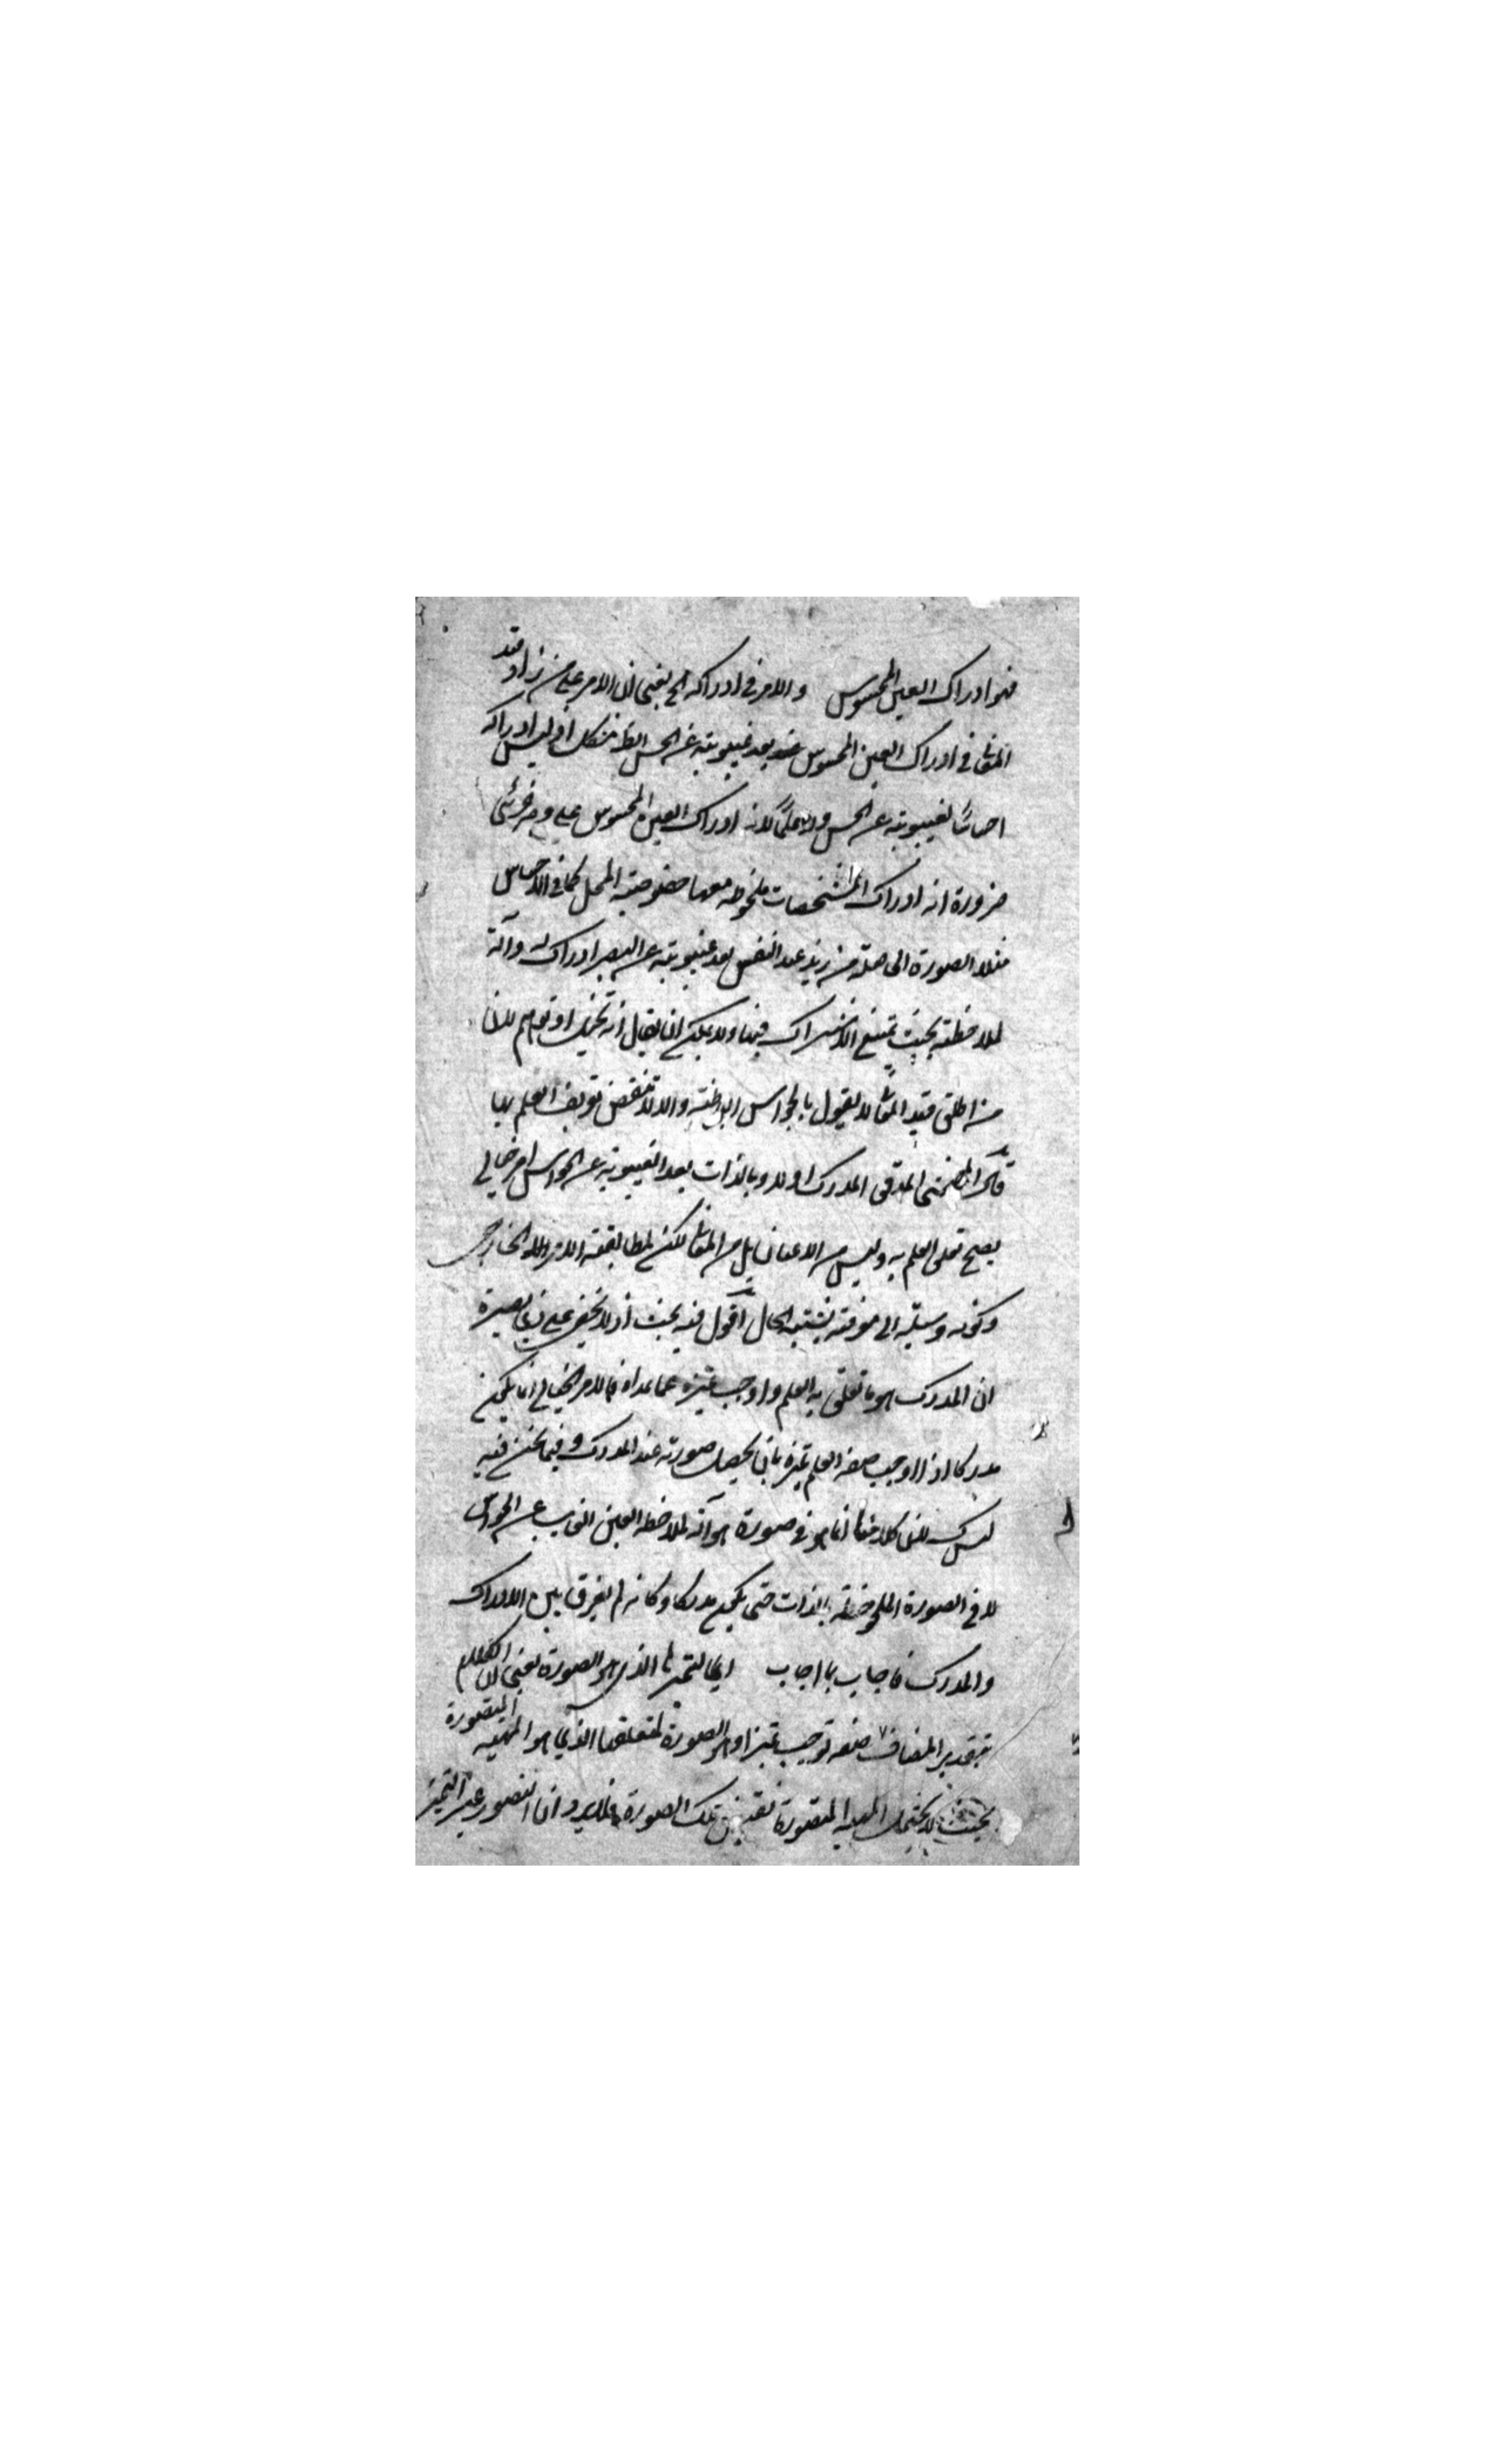 فهو ادراك العين المحسوس والامر في ادراكه الخ يعني ان الامر على من زاد قيد
المعاني في ادراك العين المحسوس عند بعد غيبوبته عن الحس الظ مشكل اذ ليس ادراكه
احساسا لغيبوبته عن الحس ولا علما لانه ادراك العين المحسوس على وجه جزئي
ضرورة انه ادراك المشخصات ملحوظه معها خصوصية المحل كما في الاحساس
مثلا الصورة الحاصلة من زيد عند النفس بعد غيبوبته عن البصر ادراك له وآلة
لملاحظته بحيث تمنع الاشتراك فيها ولا يمكن ان يقال انه تخيل او توهم لان
من اطلق قيد المعاني لا يقول بالحواس الباطنة والا لانتقض تعريف العلم بها
قال المحشي المدقق المدرك اولا وبالذات بعد الغيبوبة عن الحواس امر خيالي
يصح تعلق العلم به وليس من الاعيان بل من المعاني لكن لمطابقته الامر الخارجي
وكونه وسيلة الى معرفته يشتبه الحال اقول فيه بحث اذ لا يخفى على ذي بصيرة
ان المدرك هو ما تعلق به العلم واوجب تميزه عما عداه فالامر الخيالي انما يكون
مدركا اذا اوجب صفة العلم تميزه بان يحصل صورته عند المدرك وفيما نحن فيه
ليس كك لان كلامنا انما هو في صورة هو آلة لملاحظة العين الغايب عن الحواس
لا في الصورة الملحوظة بالذات حتى يكون مدركا وكانه لم يفرق بين الادراك
والمدرك فاجاب بما اجاب اي التميز الذي هو الصورة يعني ان الكلام
بتقدير المضاف صفه توجب تميزا وهو الصورة لمتعلقها الذي هو المهيه المتصورة
بحيث لا يحتمل المهيه المتصورة نقيض تلك الصورة فلا يرد ان التصور عين التميز